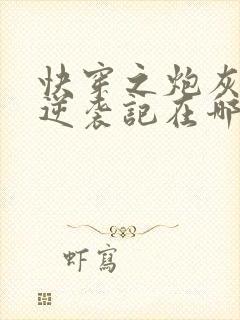 快穿之炮灰
逆袭記在哪
虾寫